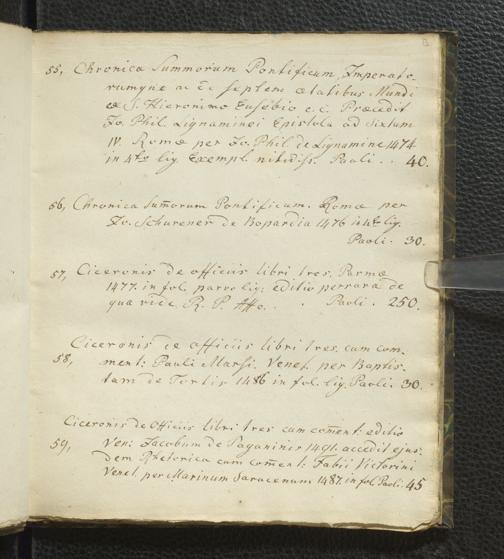 55, Chronica Summorum Pontificum, Imperato-
rumque ac de septem ætatibus Mundi
ex S. Hieronimo Eusebio e.c. Præcedit
Jo. Phil. Lignaminei Epistola ad Sixtum
IV. Romæ per Jo. Phil. de Lignamine 1474
in 4to lig. Exempl. nitidiss. Paoli . . 40.
56, Chronica Sumorum Pontificum. Romæ per
Jo. Schurener de Bopardia 1476 in 4to lig.
Paoli . 30.
57, Ciceronis de officiis libri tres. Parmæ
1477. in fol. parvo lig: editio perrara de
qua vide R. P. Affo. . . Paoli . 250.
Ciceronis de officiis libri tres cum com-
58, ment: Pauli Marsi. Venet. per Baptis-
tam de Tortis 1486 in fol. lig. Paoli. 30.
Ciceronis de Officiis libri tres cum coment: editio
59, Ven: Jacobum de Paganinis 1491. accedit ejus-
dem Rhetorica cum coment: Fabii Victorini
Venet. per Marinum Saracenum 1487. in fol. Paoli. 45